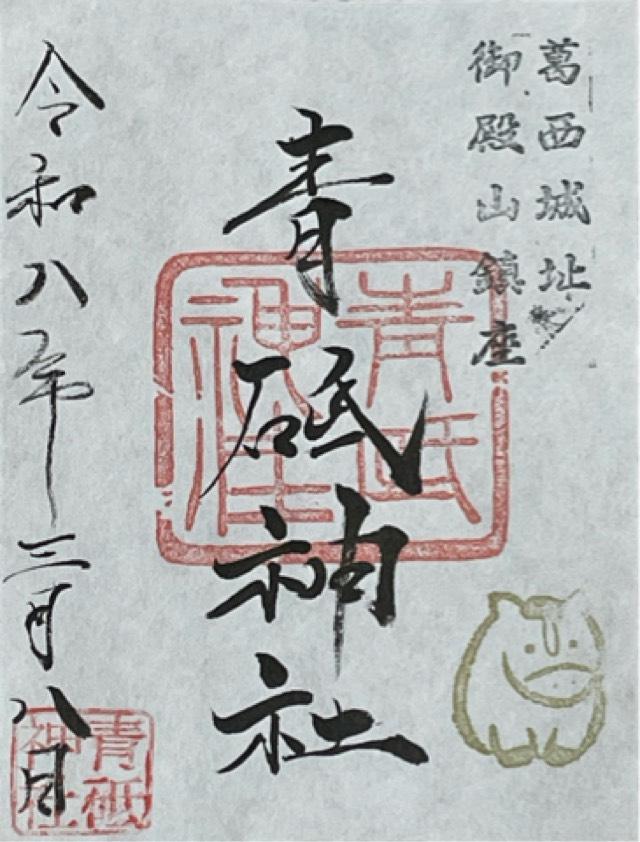 葛西城址
御殿山鎮座
青砥神社
青砥神社
令和八年三月八日
青砥神社